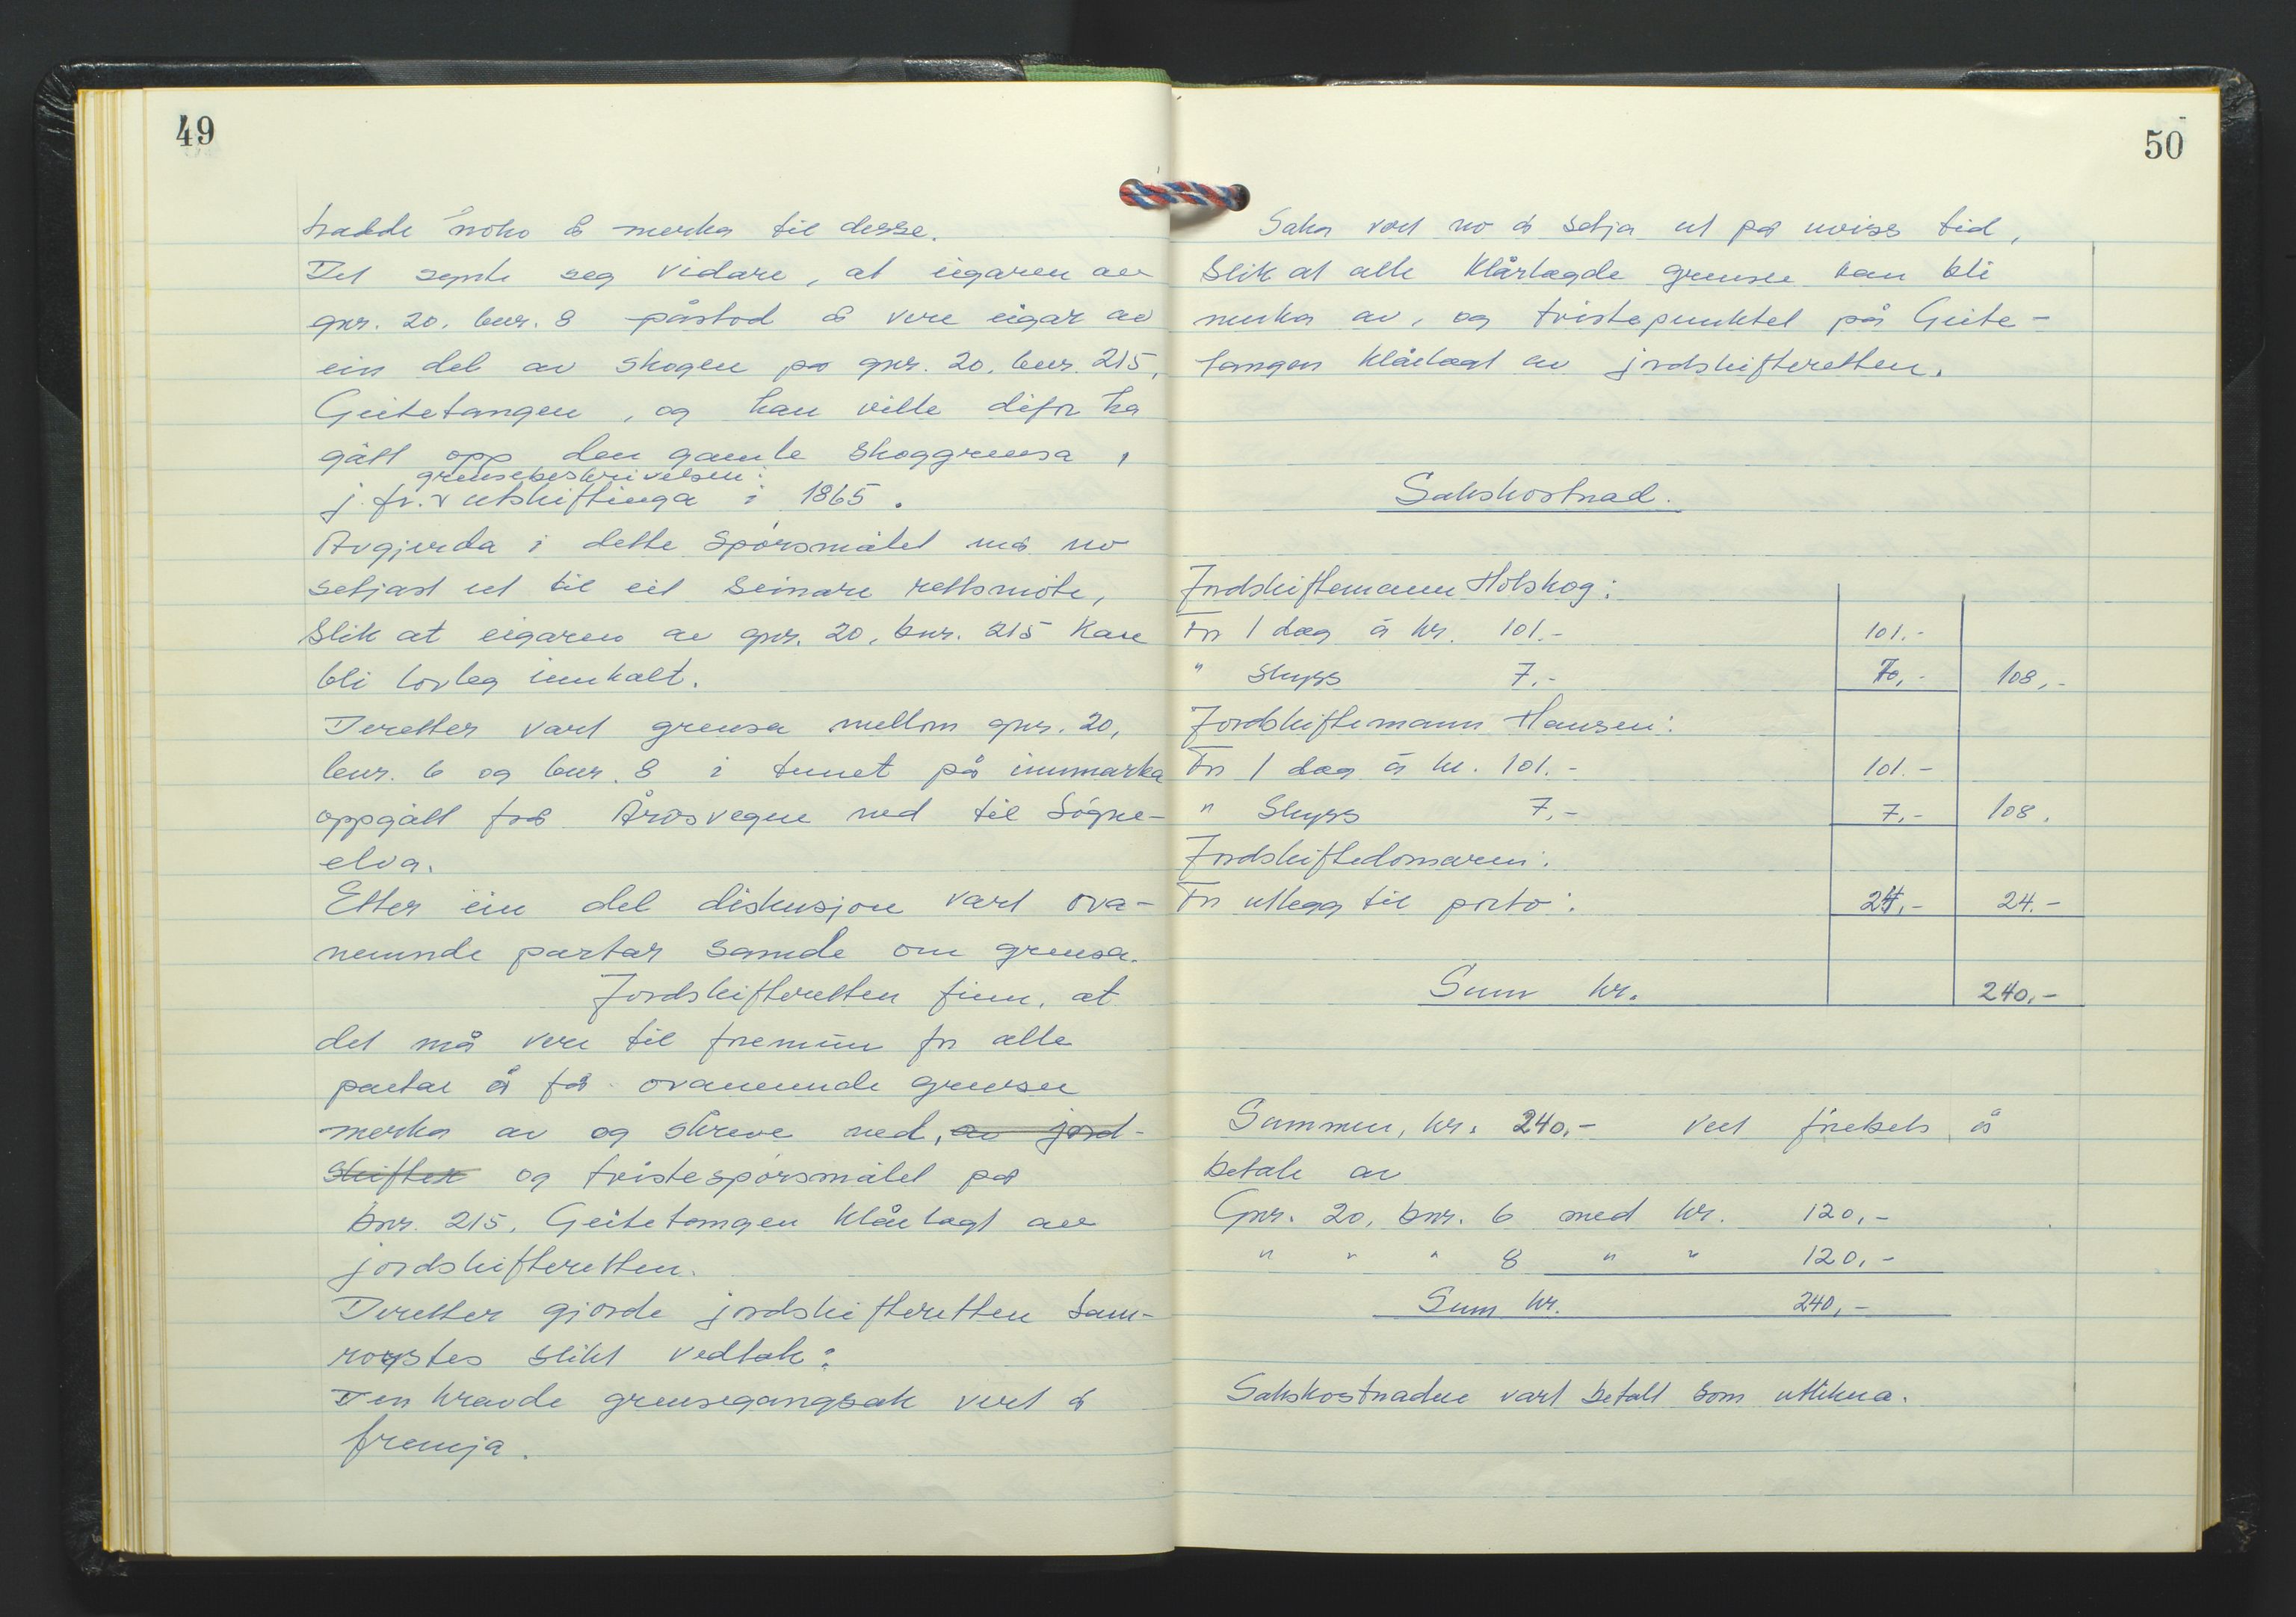 49
hadde noko å merka til desse.
Det synte seg vidare, at eigaren av
gnr. 20. bnr. 8 påstod å vere eigar av
ein del av skogen på gnr. 20. bnr. 215,
Geitetangen, og han ville difor ha
gått opp den gamle skoggrensa,
grensebeskrivelsen:
j.fr. v utskiftinga i 1865.
Avgjerda i dette spørsmålet må no
setjast ut til eit seinare rettsmøte,
slik at eigaren av gnr. 20, bnr. 215 kan
bli lovleg innkalt.
Deretter vart grensa mellom gnr. 20,
bnr. 6 og bnr. 8 i tunet på innmarka
oppgått frå Årosvegen ned til Søgne-
elva.
Etter ein del diskusjon vart ova-
nemnde partar samde om grensa.
Jordskifteretten finn, at
det må vere til fremün for alle
partar å få ovanemnde grenser
merka av og skreve ned, av jord-
skifter og tvistespørsmålet på
bnr. 215, Geitetangen klårlagt av
jordskifteretten.
Deretter gjorde jordskifteretten sam-
røystes slikt vedtak:
Den kravde grensegangsak vert å
fremja.
50
Saka vert no å setja ut på uviss tid,
slik at alle klårlagde grenser kan bli
merka av, og tvistepunktet på Geite-
tangen klårlagt av jordskifteretten.
Sakskostnad.
Jordskiftemann Holskog:
For 1 dag à kr. 101.- 101.-
" Skyss 7,- 70,- 108,-
Jordskiftemann Hansen:
For 1 dag à kr. 101.- 101.-
" Skyss 7,- 7,- 108.
Jordskiftedomaren:
For utlegg til porto: 24,- 24.-
Sum kr. 240,-
Summen, kr. 240,- vert førebels å
betale av
Gnr. 20, bnr. 6 med kr. 120,-
" " " 8 " " 120,-
Sum kr. 240,-
Sakskostnaden vart betalt som utlikna.